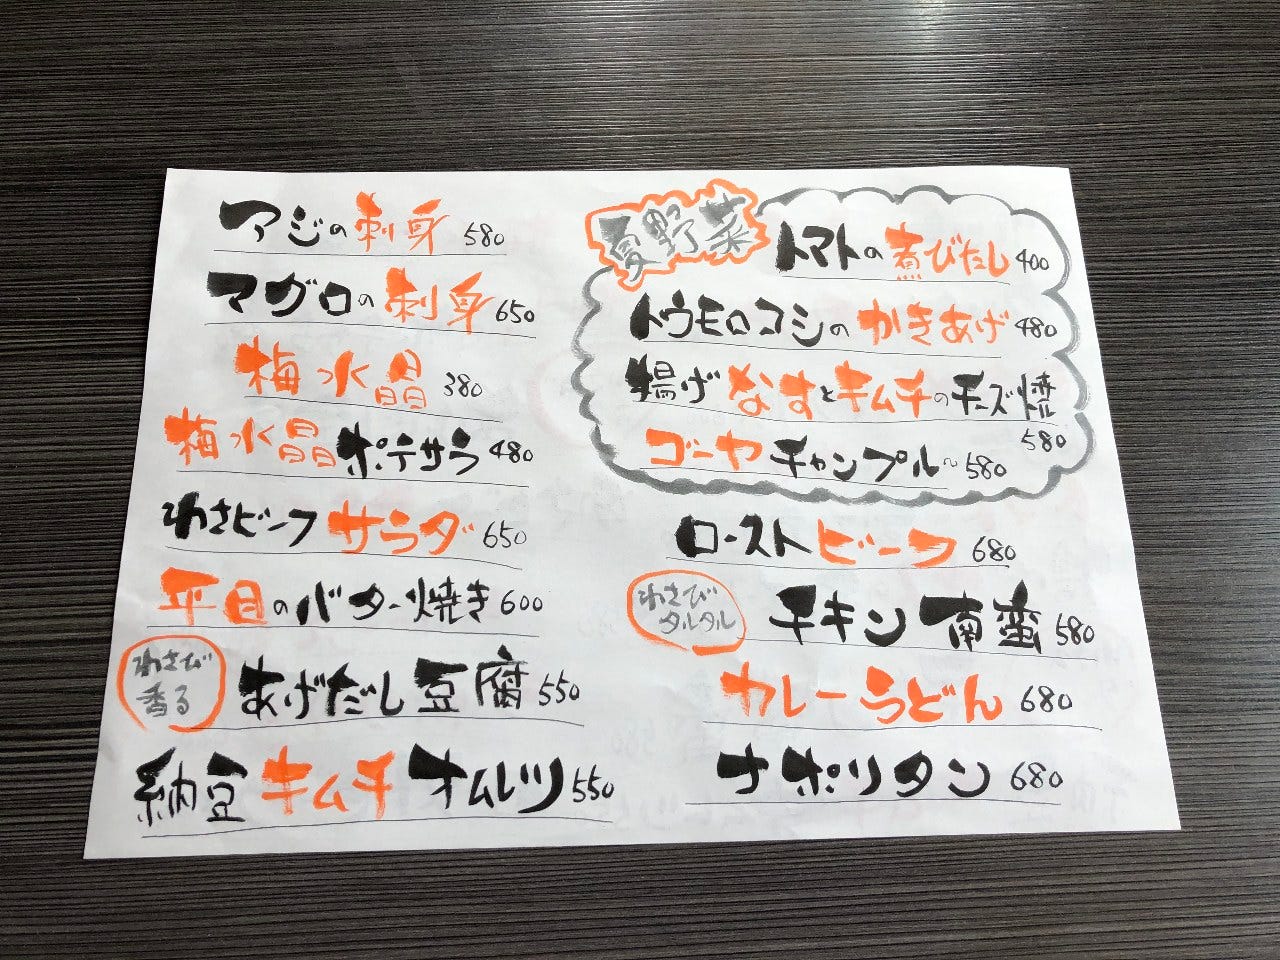 アジの刺身 580
マグロの刺身 650
梅水晶 380
梅水晶ポテサラ 480
わさビーフサラダ 650
平目のバター焼き 600
わさび
香る
あげだし豆腐 550
納豆キムチオムレツ 550
夏野菜
トマトの煮びたし 400
トウモロコシのかきあげ 480
揚げなすとキムチのチーズ焼
580
ゴーヤチャンプル〜 580
ローストビーフ 680
わさび
タルタル
チキン南蛮 580
カレーうどん 680
ナポリタン 680